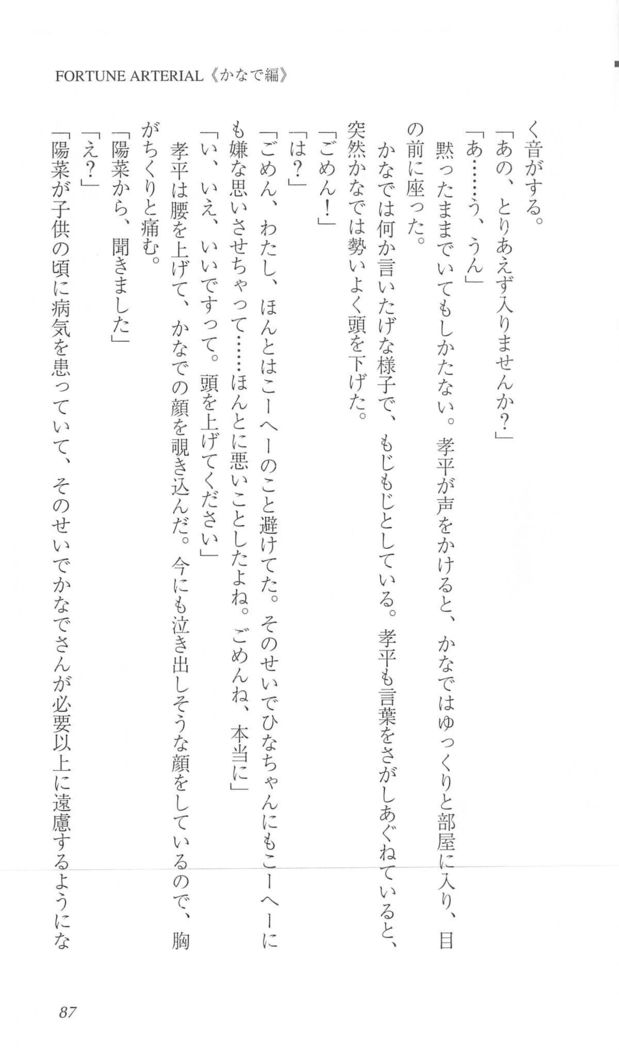 FORTUNE ARTERIAL《かなで編》
く音がする。
「あの、とりあえず入りませんか？」
「あ……う、うん」
黙ったままでいてもしかたない。孝平が声をかけると、かなではゆっくりと部屋に入り、目
の前に座った。
かなでは何か言いたげな様子で、もじもじとしている。孝平も言葉をさがしあぐねていると、
突然かなでは勢いよく頭を下げた。
「ごめん！」
「は？」
「ごめん、わたし、ほんとはこーへーのこと避けてた。そのせいでひなちゃんにもこーへーに
も嫌な思いさせちゃって……ほんとに悪いことしたよね。ごめんね、本当に」
「い、いえ、いいですって。頭を上げてください」
孝平は腰を上げて、かなでの顔を覗き込んだ。今にも泣き出しそうな顔をしているので、胸
がちくりと痛む。
「陽菜から、聞きました」
「え？」
「陽菜が子供の頃に病気を患っていて、そのせいでかなでさんが必要以上に遠慮するようにな
87